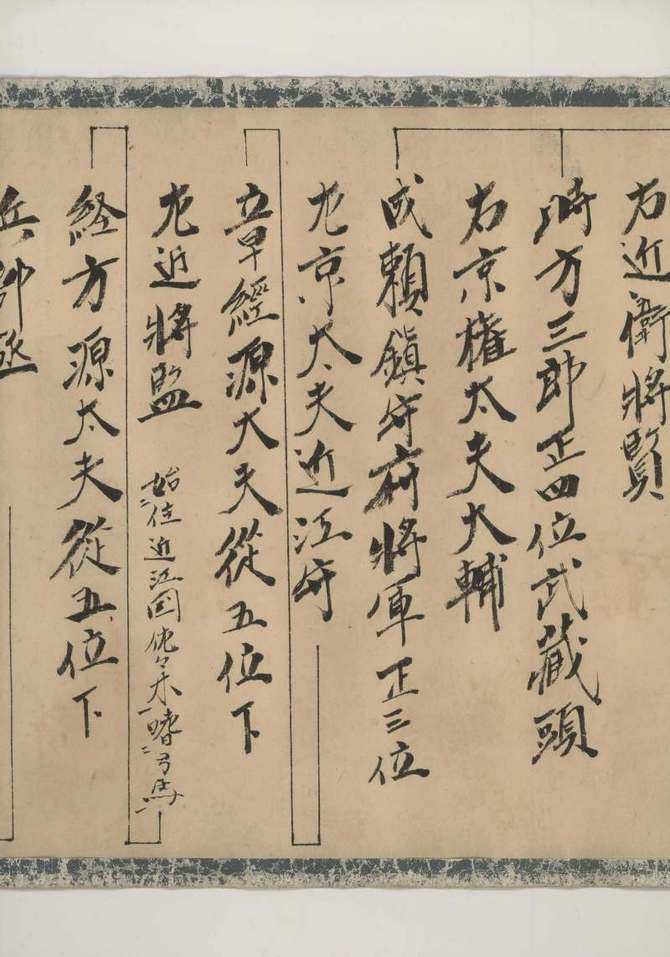 右近衛将監
時方三郎正四位武蔵頭
右京権太夫大輔
成頼鎮守府將軍正三位
左京太夫近江守
章經源大夫從五位下
左近將監
始住近江国佐々木嗜弓馬
経方源太夫從五位下
兵部丞